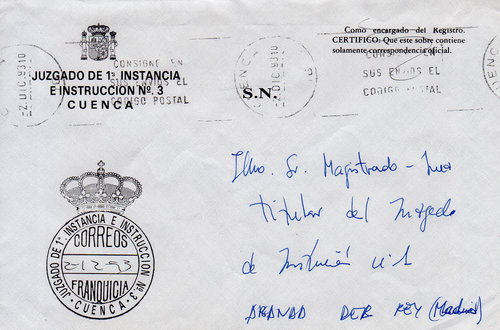 Como encargado del Registro.
CERTIFICO: Que este sobre contiene
solamente correspondencia oficial.
JUZGADO DE 1ª INSTANCIA
E INSTRUCCION Nº. 3
CUENCA
S.N.
CUENCA
-2.DIC.93 10
CONSIGNE EN
SUS ENVIOS EL
CODIGO POSTAL
CUENCA
-2.DIC.93 10
CONSIGNE EN
SUS ENVIOS EL
CODIGO POSTAL
CUENCA
Ilmo. Sr. Magistrado - Juez
Titular del Juzgado
de Instrucción nº 1
ARANDA DEL REY (Madrid)
JUZGADO DE 1ª INSTANCIA E INSTRUCCION Nº 3
CORREOS
2-12-93
FRANQUICIA
CUENCA